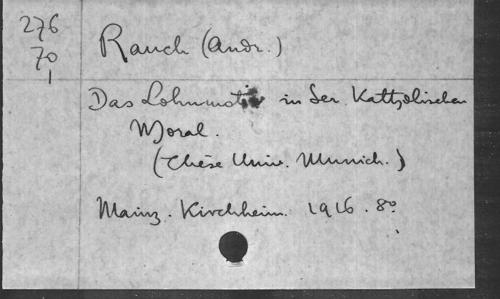 276
70
1
Rauch (Andr.)
Das Lohnmotiv in der Kattholischen
Moral.
(Thèse Univ. Munich.)
Mainz. Kirchheim. 1916. 8º.